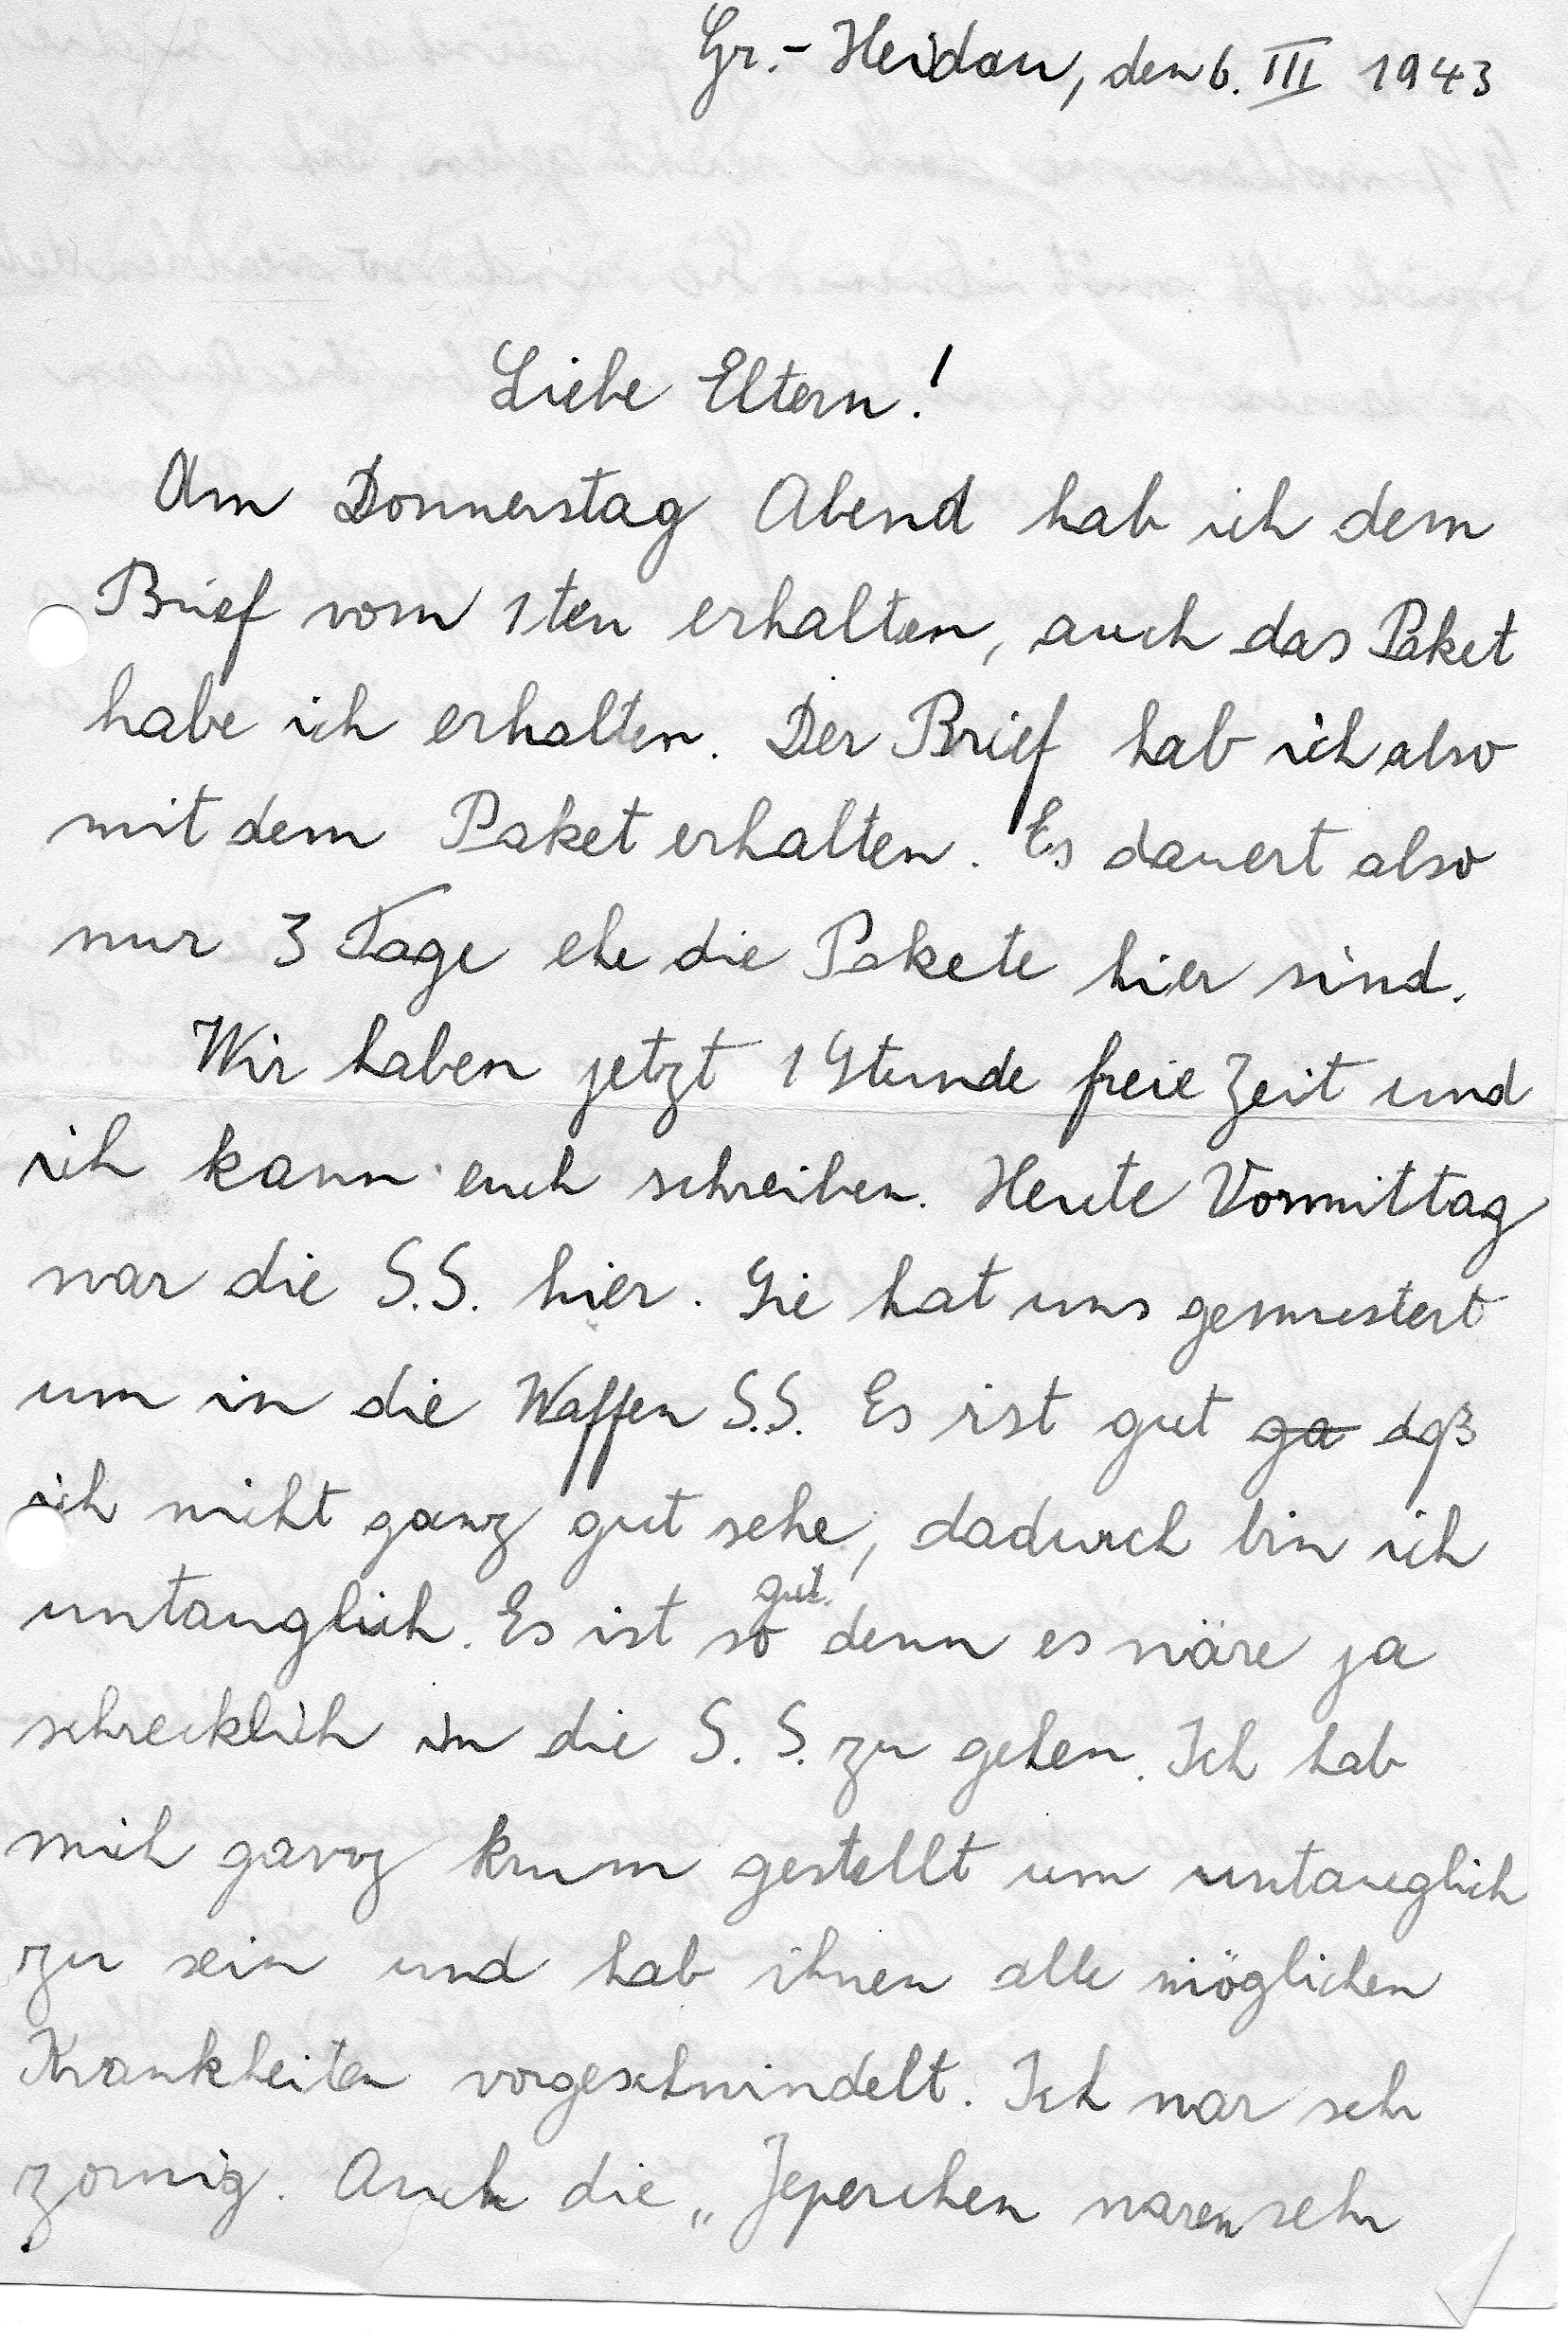 Gr.- Heidau, den 6. III 1943
Liebe Eltern!
Am Donnerstag Abend hab ich dem
Brief vom 1ten erhalten, auch das Paket
habe ich erhalten. Der Brief hab ich also
mit dem Paket erhalten. Es dauert also
nur 3 Tage ehe die Pakete hier sind.
Wir haben jetzt 1 Stunde freie Zeit und
ich kann euch schreiben. Heute Vormittag
war die S.S. hier. Sie hat uns gemustert
um in die Waffen S.S. Es ist gut ga daß
ich nicht ganz gut sehe, dadurch bin ich
untauglich. Es ist so gut denn es wäre ja
schrecklich in die S. S. zu gehen. Ich hab
mich ganz krum gestellt um untauglich
zu sein und hab ihnen alle möglichen
Krankheiten vorgeschwindelt. Ich war seh
zornig. Auch die „Jeperchen waren sehr